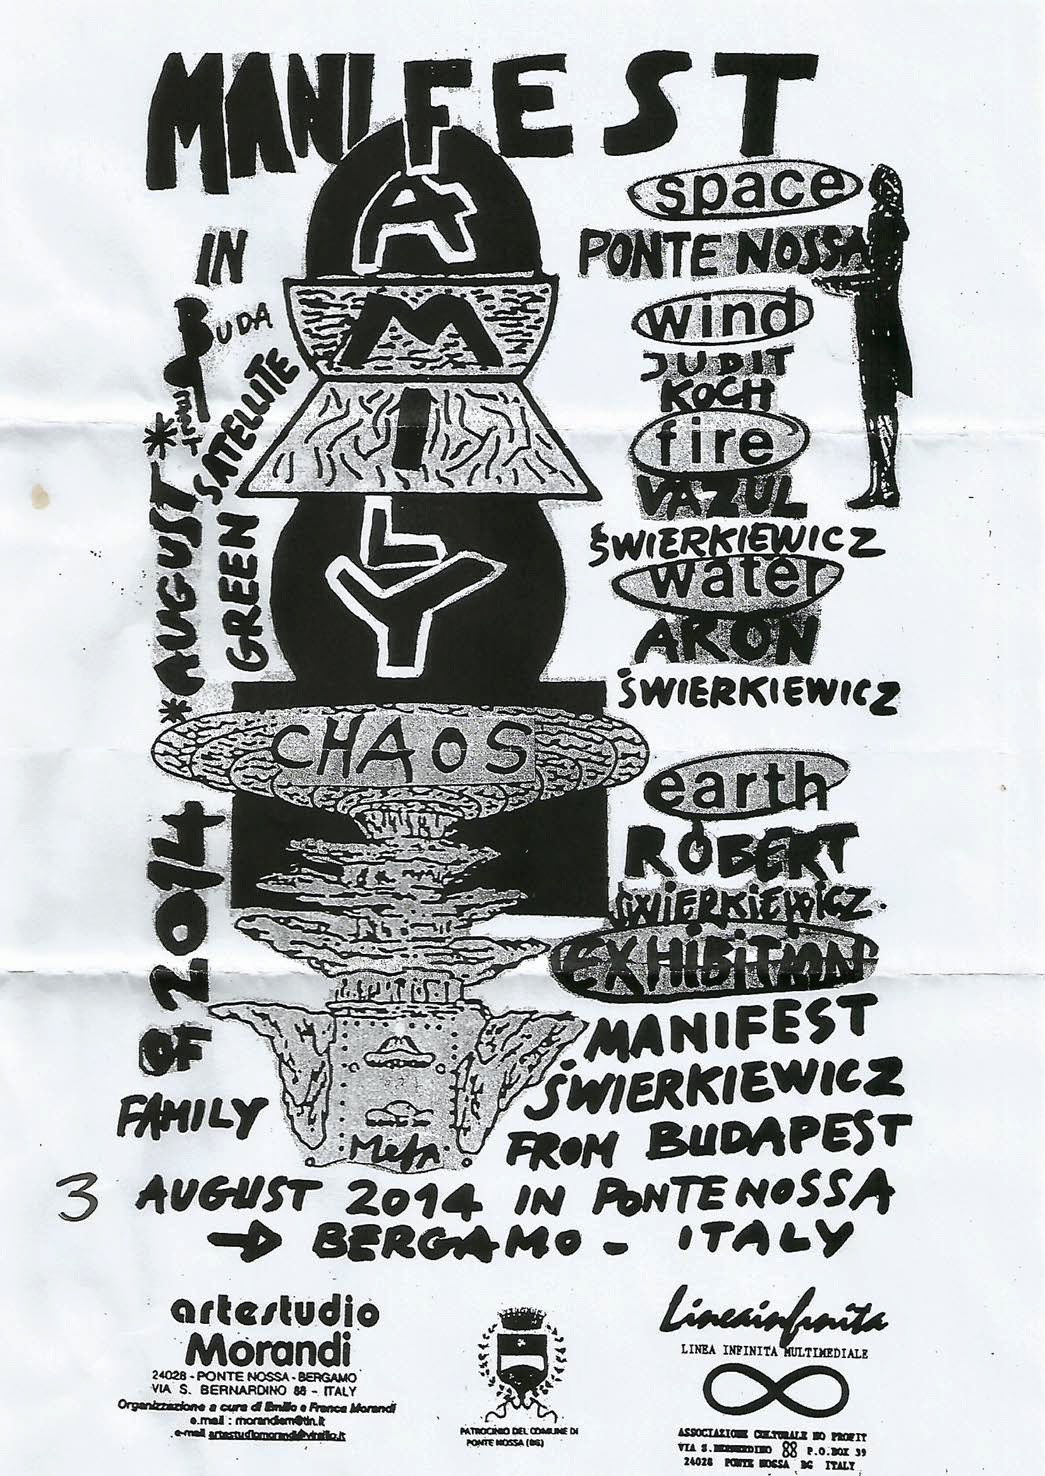 MANIFEST
FAMILY
IN
BUDA
GREEN SATELLITE
*AUGUST*
OF 2014
FAMILY
CHAOS
space
PONTE NOSSA
wind
JUDIT
KOCH
fire
VAZUL
ŚWIERKIEWICZ
water
ARON
ŚWIERKIEWICZ
earth
ROBERT
ŚWIERKIEWICZ.
EXHIBITION
MANIFEST
ŚWIERKIEWICZ
FROM BUDAPEST
3 AUGUST 2014 IN PONTE NOSSA
→ BERGAMO - ITALY
artestudio
Morandi
24028 - PONTE NOSSA - BERGAMO
VIA S. BERNARDINO 88 - ITALY
Organizzazione a cura di Emilio e Franca Morandi
e.mail : morandiem@tin.it
e-mail artestudiomorandi@virgilio.it
PATROCINIO DEL COMUNE DI
PONTE NOSSA (BG)
Lineainfinita
LINEA INFINITA MULTIMEDIALE
ASSOCIAZIONE CULTURALE NO PROFIT
VIA S.BERNARDINO 88 P.O.BOX 39
24028 PONTE NOSSA BG ITALY